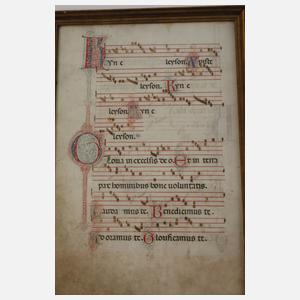 Kyri e leyson. Xpiste
leyson. Kyri e
leyson. Kyri e
leyson.
Gloria in excelsis deo. Et in terra
pax hominibus bone voluntatis.
Laudamus te. Benedicimus te.
Adoramus te. Glorificamus te.